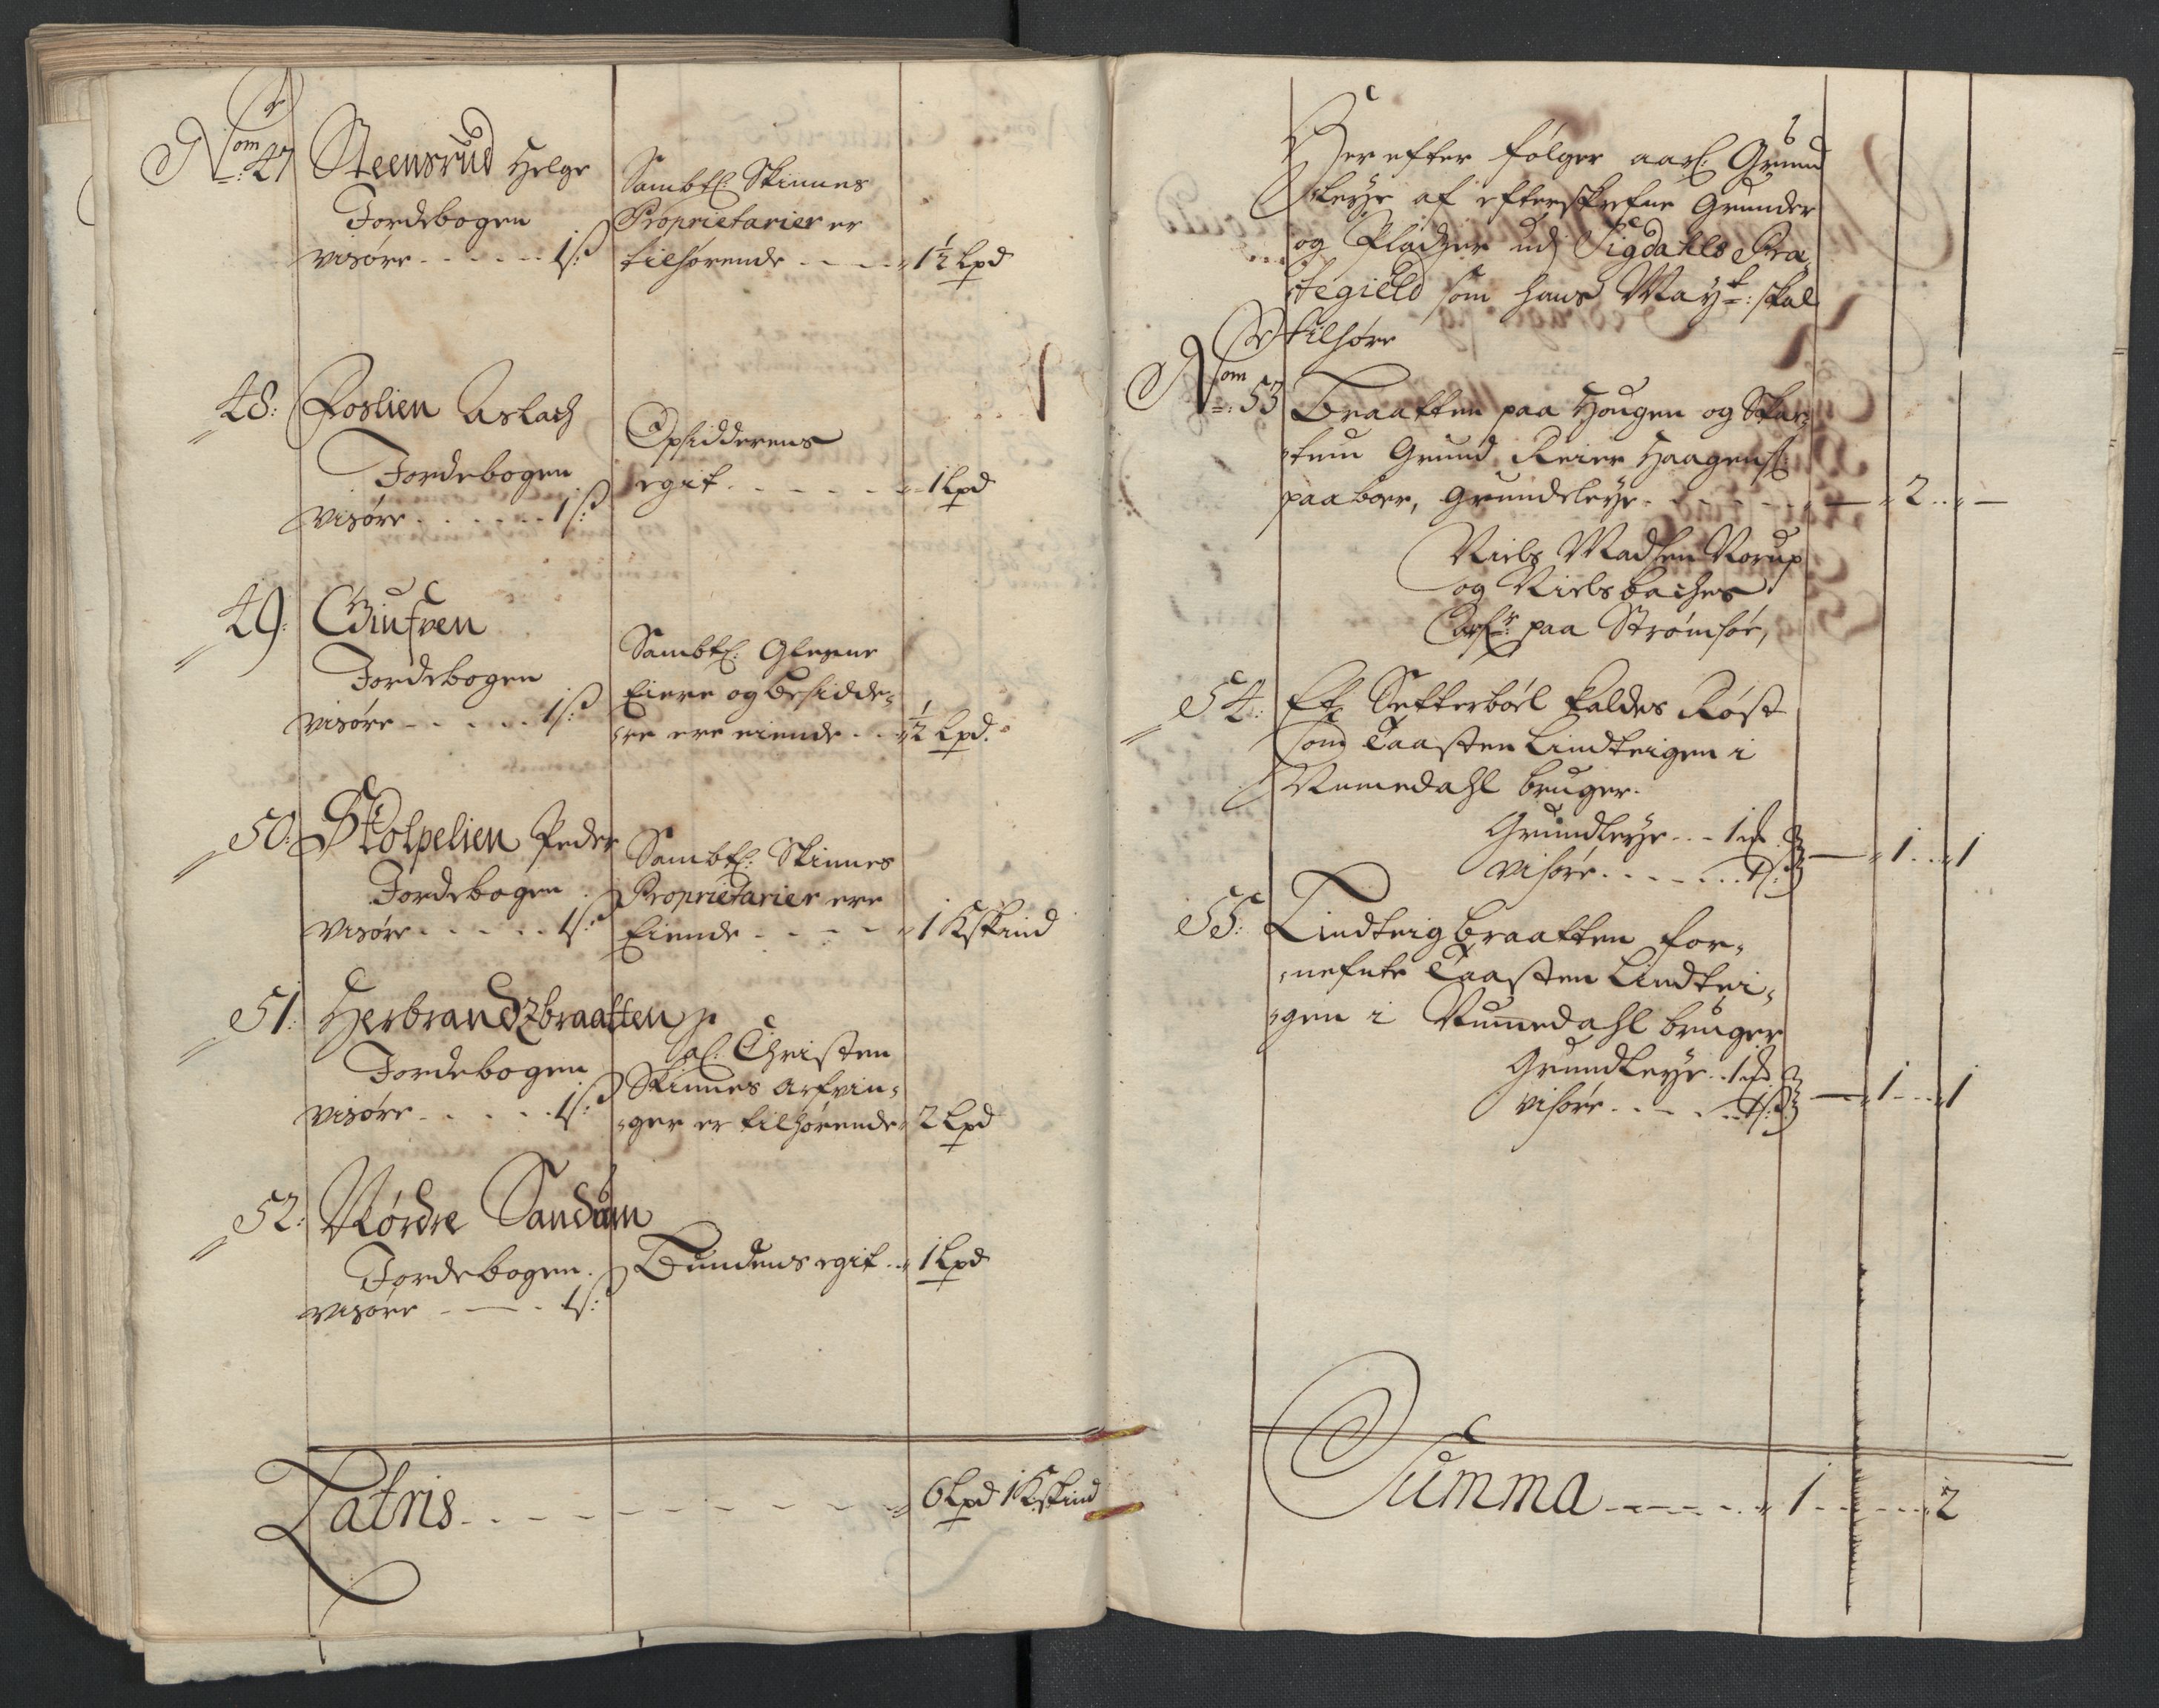 Nom
47 Steensrud Helge
Jordebogen
visøre - - - - - 1 ß:
Sambtl: Skinnes
Proprietarier er
tilhørende - - - - 1½ Lpd
48: Foslien Aslach
Jordebogen
visøre . . . . . . 1 ß:
Opsidderens
egit . - - - - - 1 Lpd
49:
Jordebogen
visøre - - - - - 1 ß:
Sambtl: Glesne
Eiere og besidde-
re ere eiende . . . ½ Lpd.
50: Stolpelien Peder
Jordebogen
visøre . . . . . 1 ß:
Sambtl: Skinnes
Proprietarier ere
Eiende - - - - - 1 Kskind
51: Herbrandzbraatten
Jordebogen
visøre - . . . . 1 ß:
Sl: Christen
Skinnes arfvin-
ger er tilhørende 2 Lpd
52: Nørdre Sandum
Jordebogen.
visøre - — - 1 ß:
Bundens egit . . 1 Lpd
Latris - . - - - - - - - - 6 Lpd 1 Kskind
Her efter følger aarl: Grund
Leye af efterskrefne Grunder
og Pladzer udj Sigdahls Præ-
stegield som hans Mayt: skal
tilhøre
Nom
53 Braatten paa Hougen og Skar-
tum Grund Reier Haagens:
paaboer, grundeleye - - - - - — 2 . . —
Niels Madsen Norup
og Niels baches
Arfr: paa Strømsøe,
54: Et Setterböl kaldes Røst
som Taasten Lindteigen i
Numedahl bruger.
Grundleye . . - 1
visøre . . . . . . 1 ß: — 1 . . . 1
55: Lindteigbraatten for-
nefnte Taasten Lindtei-
gen i Numedahl bruger
Grundleye . . 1
visøre . . - . . . 1 ß: — 1 - - . 1
Summa - - - - - . 1 . - - - - . 2